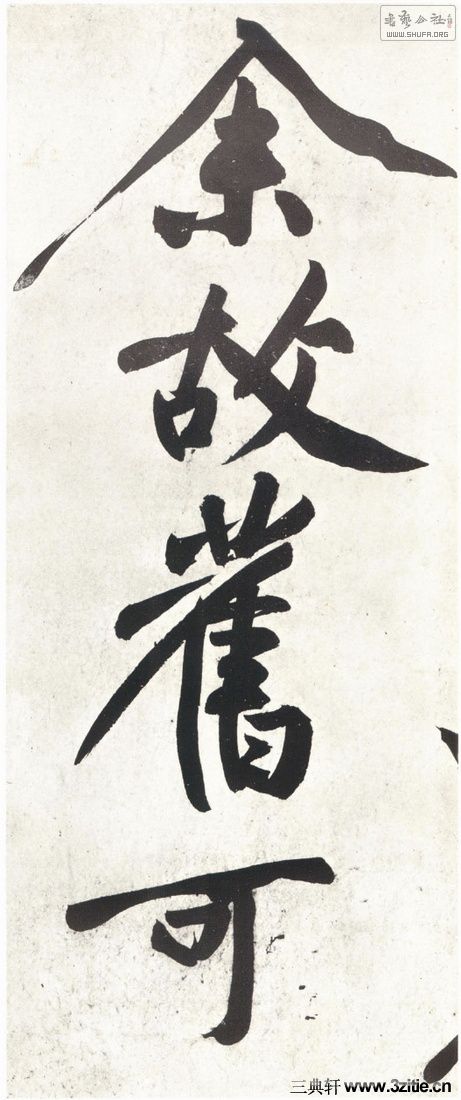 余故舊可
書藝公社
WWW.SHUFA.ORG
三典轩 www.3zitie.cn